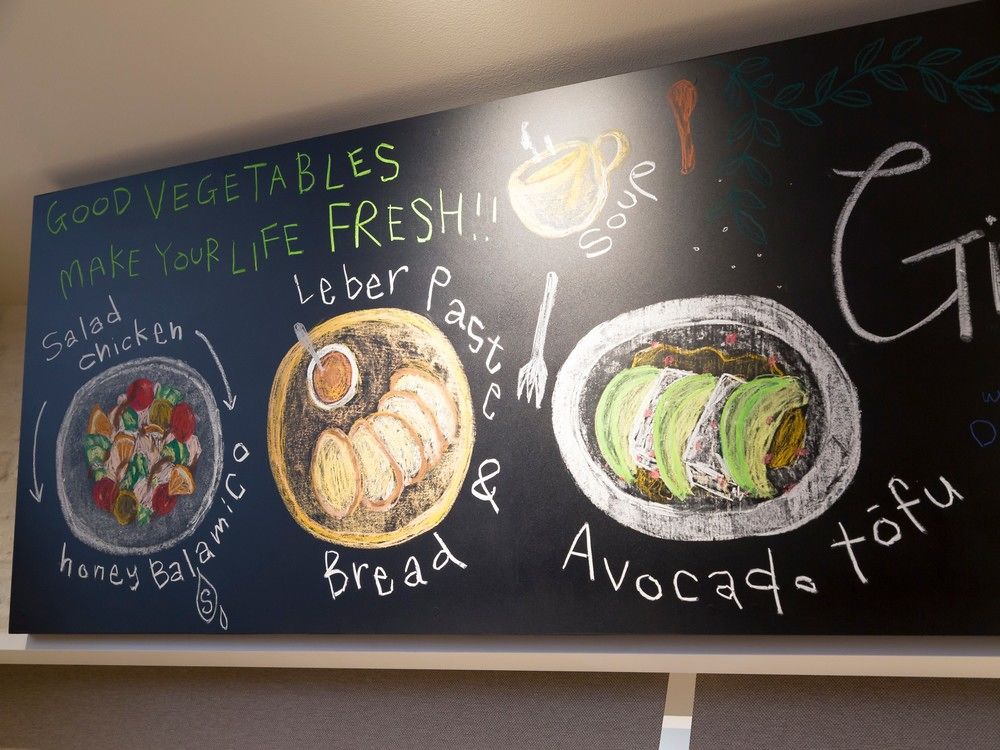 GOOD VEGETABLES
MAKE YOUR LIFE FRESH!!
Soup
Salad
chicken
honey Balamico
S
Leber Paste &
Bread
Avocado tōfu
Gi